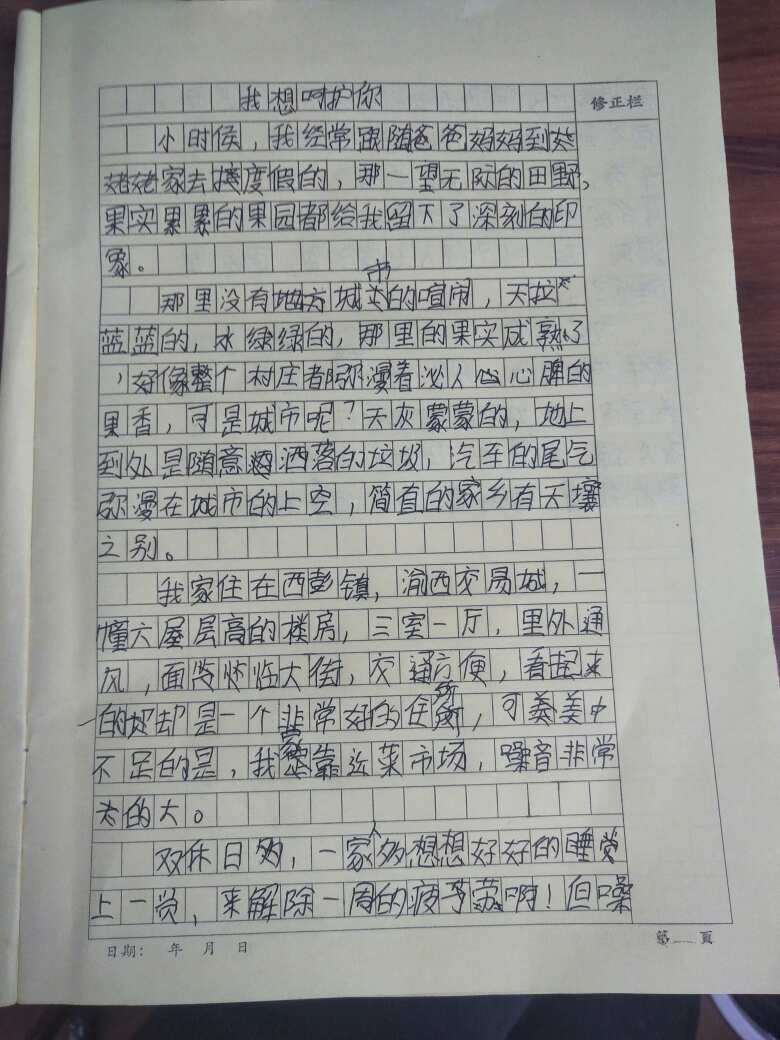 我想呵护你
修正栏
小时侯，我经常跟随爸爸妈妈到
姥姥家去度假的，那一望无际的田野，
果实累累的果园都给我留下了深刻的印
象。
那里没有地方城市的喧闹，天
蓝蓝的，水绿绿的，那里的果实成熟了
，好像整个村庄都弥漫着泌人心脾的
果香，可是城市呢？天灰蒙蒙的，地上
到处是随意洒落的垃圾，汽车的尾气
弥漫在城市的上空，简直的家乡有天壤
之别。
我家住在西彭镇，渝西交易城，一
幢六屋层高的楼房，三室一厅，里外通
风，面临大街，交通方便，看起来
的却是一个非常好的住所，可美中
不足的是，我家靠近菜市场，噪音非常
的大。
双休日多，一家人多想想好好的睡觉
上一觉，来解除一周的疲劳啊！但噪
日期： 年 月 日
第 页